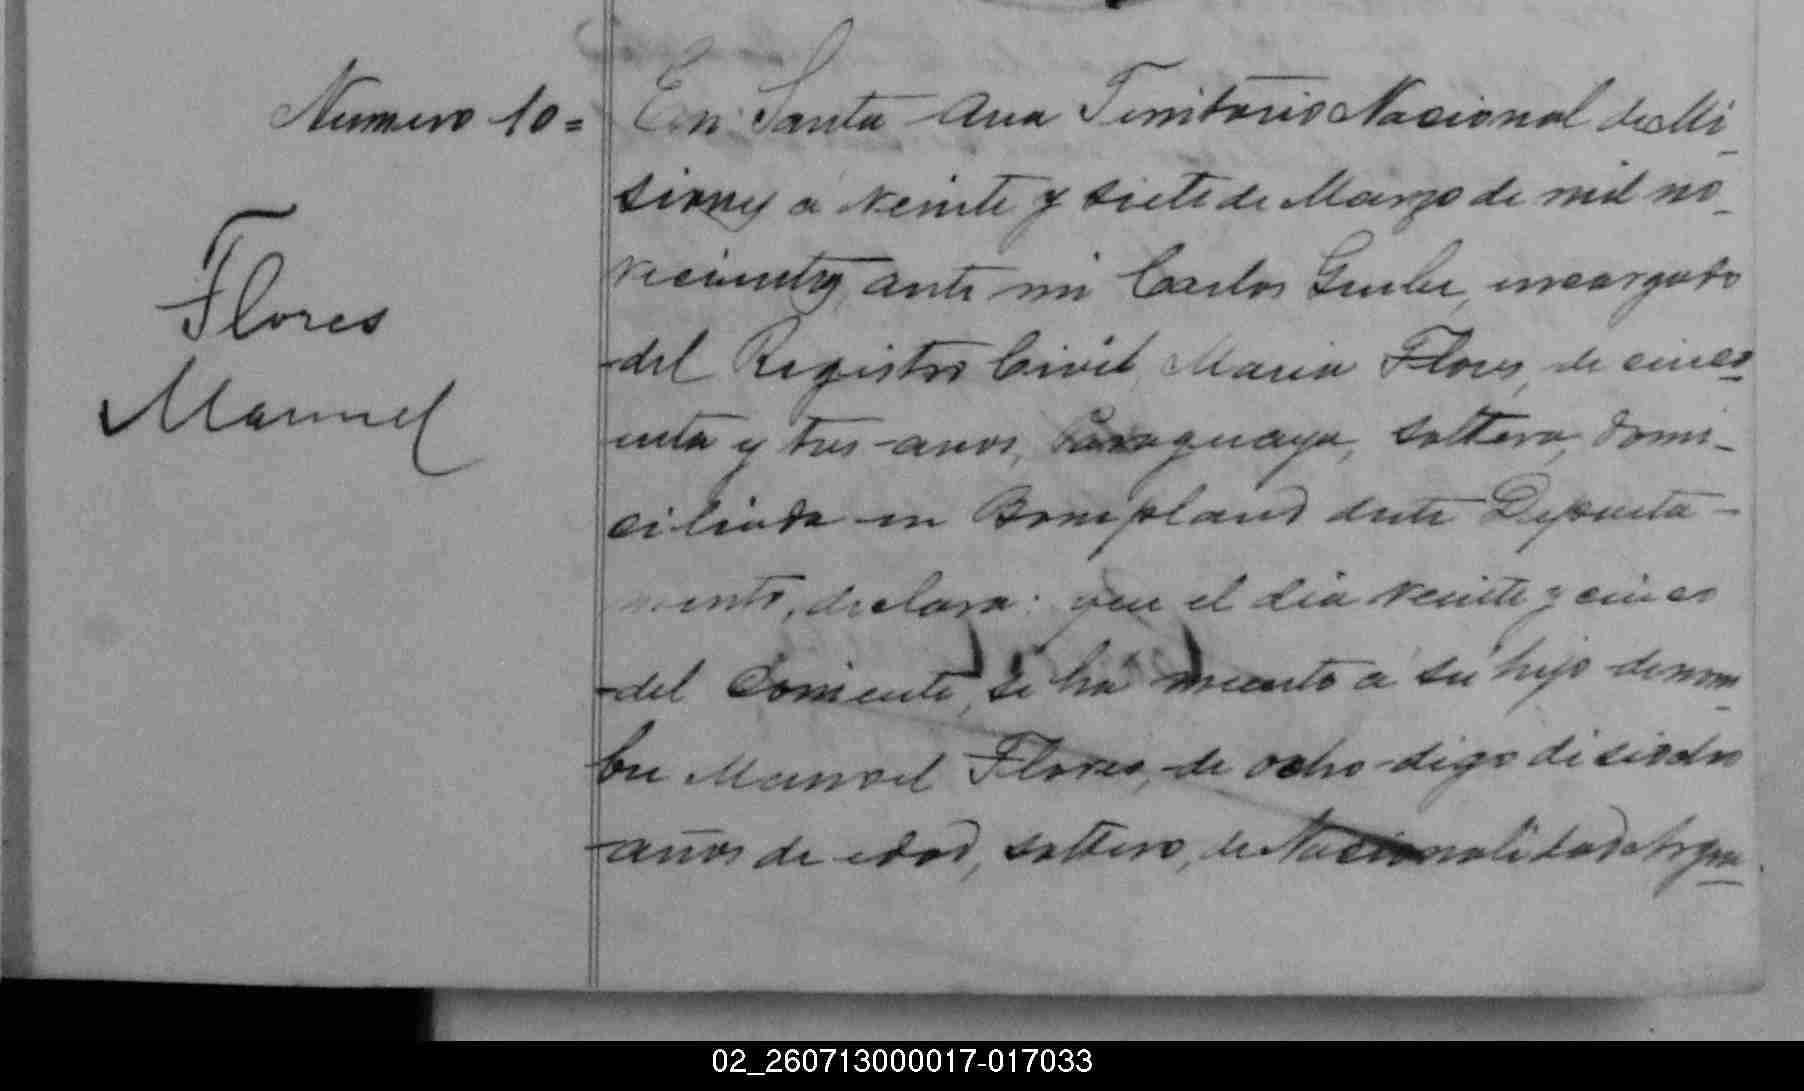 Numero 10=
Flores
Manuel
En Santa Ana Territorio Nacional de Mi-
siones a veinte y siete de Marzo de mil no-
vecientos, ante mi Carlos encargado
del Registro Civil, Maria Flores, de cinco-
enta y tres años, Paraguaya, soltera, domi-
ciliada en Bompland deste Departa-
mento, declara: que el dia veinte y cinco
del Corriente, se ha muerto a su hijo de nom-
bre Manuel Flores, de ocho digo disiocho
años de edad, soltero, de Nacionalidad Argen-
02_260713000017-017033